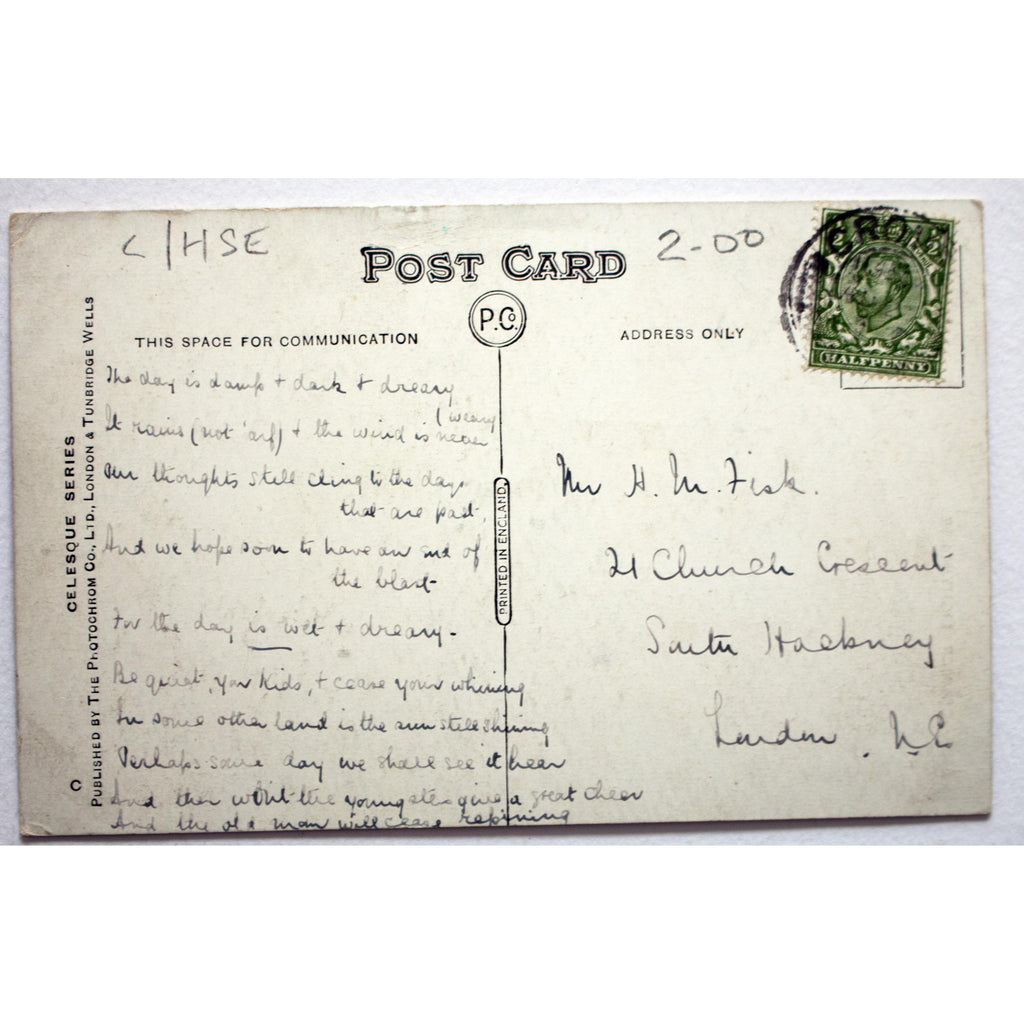 C/HSE
POST CARD
2-00
P.Co.
THIS SPACE FOR COMMUNICATION
ADDRESS ONLY
CRO
HALFPENNY
CELESQUE SERIES
PUBLISHED BY THE PHOTOCHROM CO., LTD., LONDON & TUNBRIDGE WELLS
C
PRINTED IN ENGLAND
The day is damp + dark & dreary
It rains (not 'arf) + the wind is never
(weary
Our thoughts still cling to the days
that are past,
And we hope soon to have an end of
the blast
For the day is wet + dreary-
Be quiet, you kids, + cease your whining
In some other land is the sun still shining
Perhaps some day we shall see it hear
And then won't the youngsters give a great cheer
And the old man will cease repining
Mr H. M. Fisk.
21 Church Crescent
South Hackney
London. N.E.